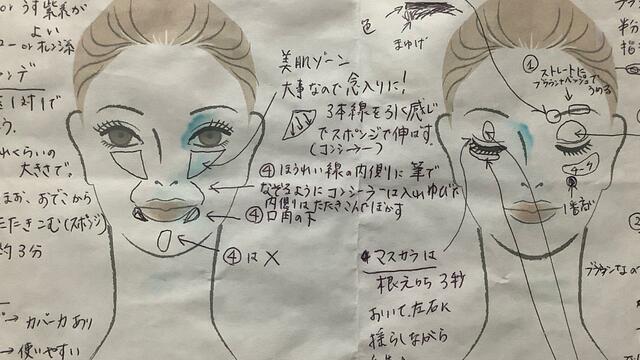 or うす紫系が
よい
ローorオレンジ系
ンデ
1対1で
う。
れくらいの
大きさで。
まお、おでこから
たたきこむ(スポンジ)
約3分
→ カバー力あり
→使いやすい
美肌ゾーン
大事なので念入りに!
3本線を引く感じ
でスポンジで伸ばす。
(コンシーラー)
④ほうれい線の内側に筆で
なぞるようにコンシーラーは入れゆびで
内側はたたきこんでぼかす
④口角の下
④は×
色
まゆげ
①
ストレートに
ブラウンベージュで
うめる
1番
マスカラは
根元から3秒
おいて、左右に
揺らしながら
半分
指
ブラウンなの